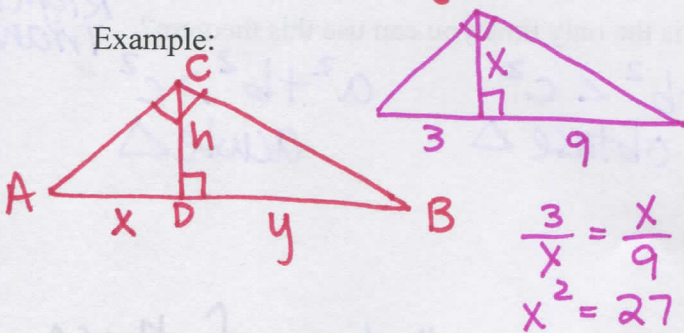 Example:
C
h
A
x D y B
x
3 9
3/x = x/9
x² = 27